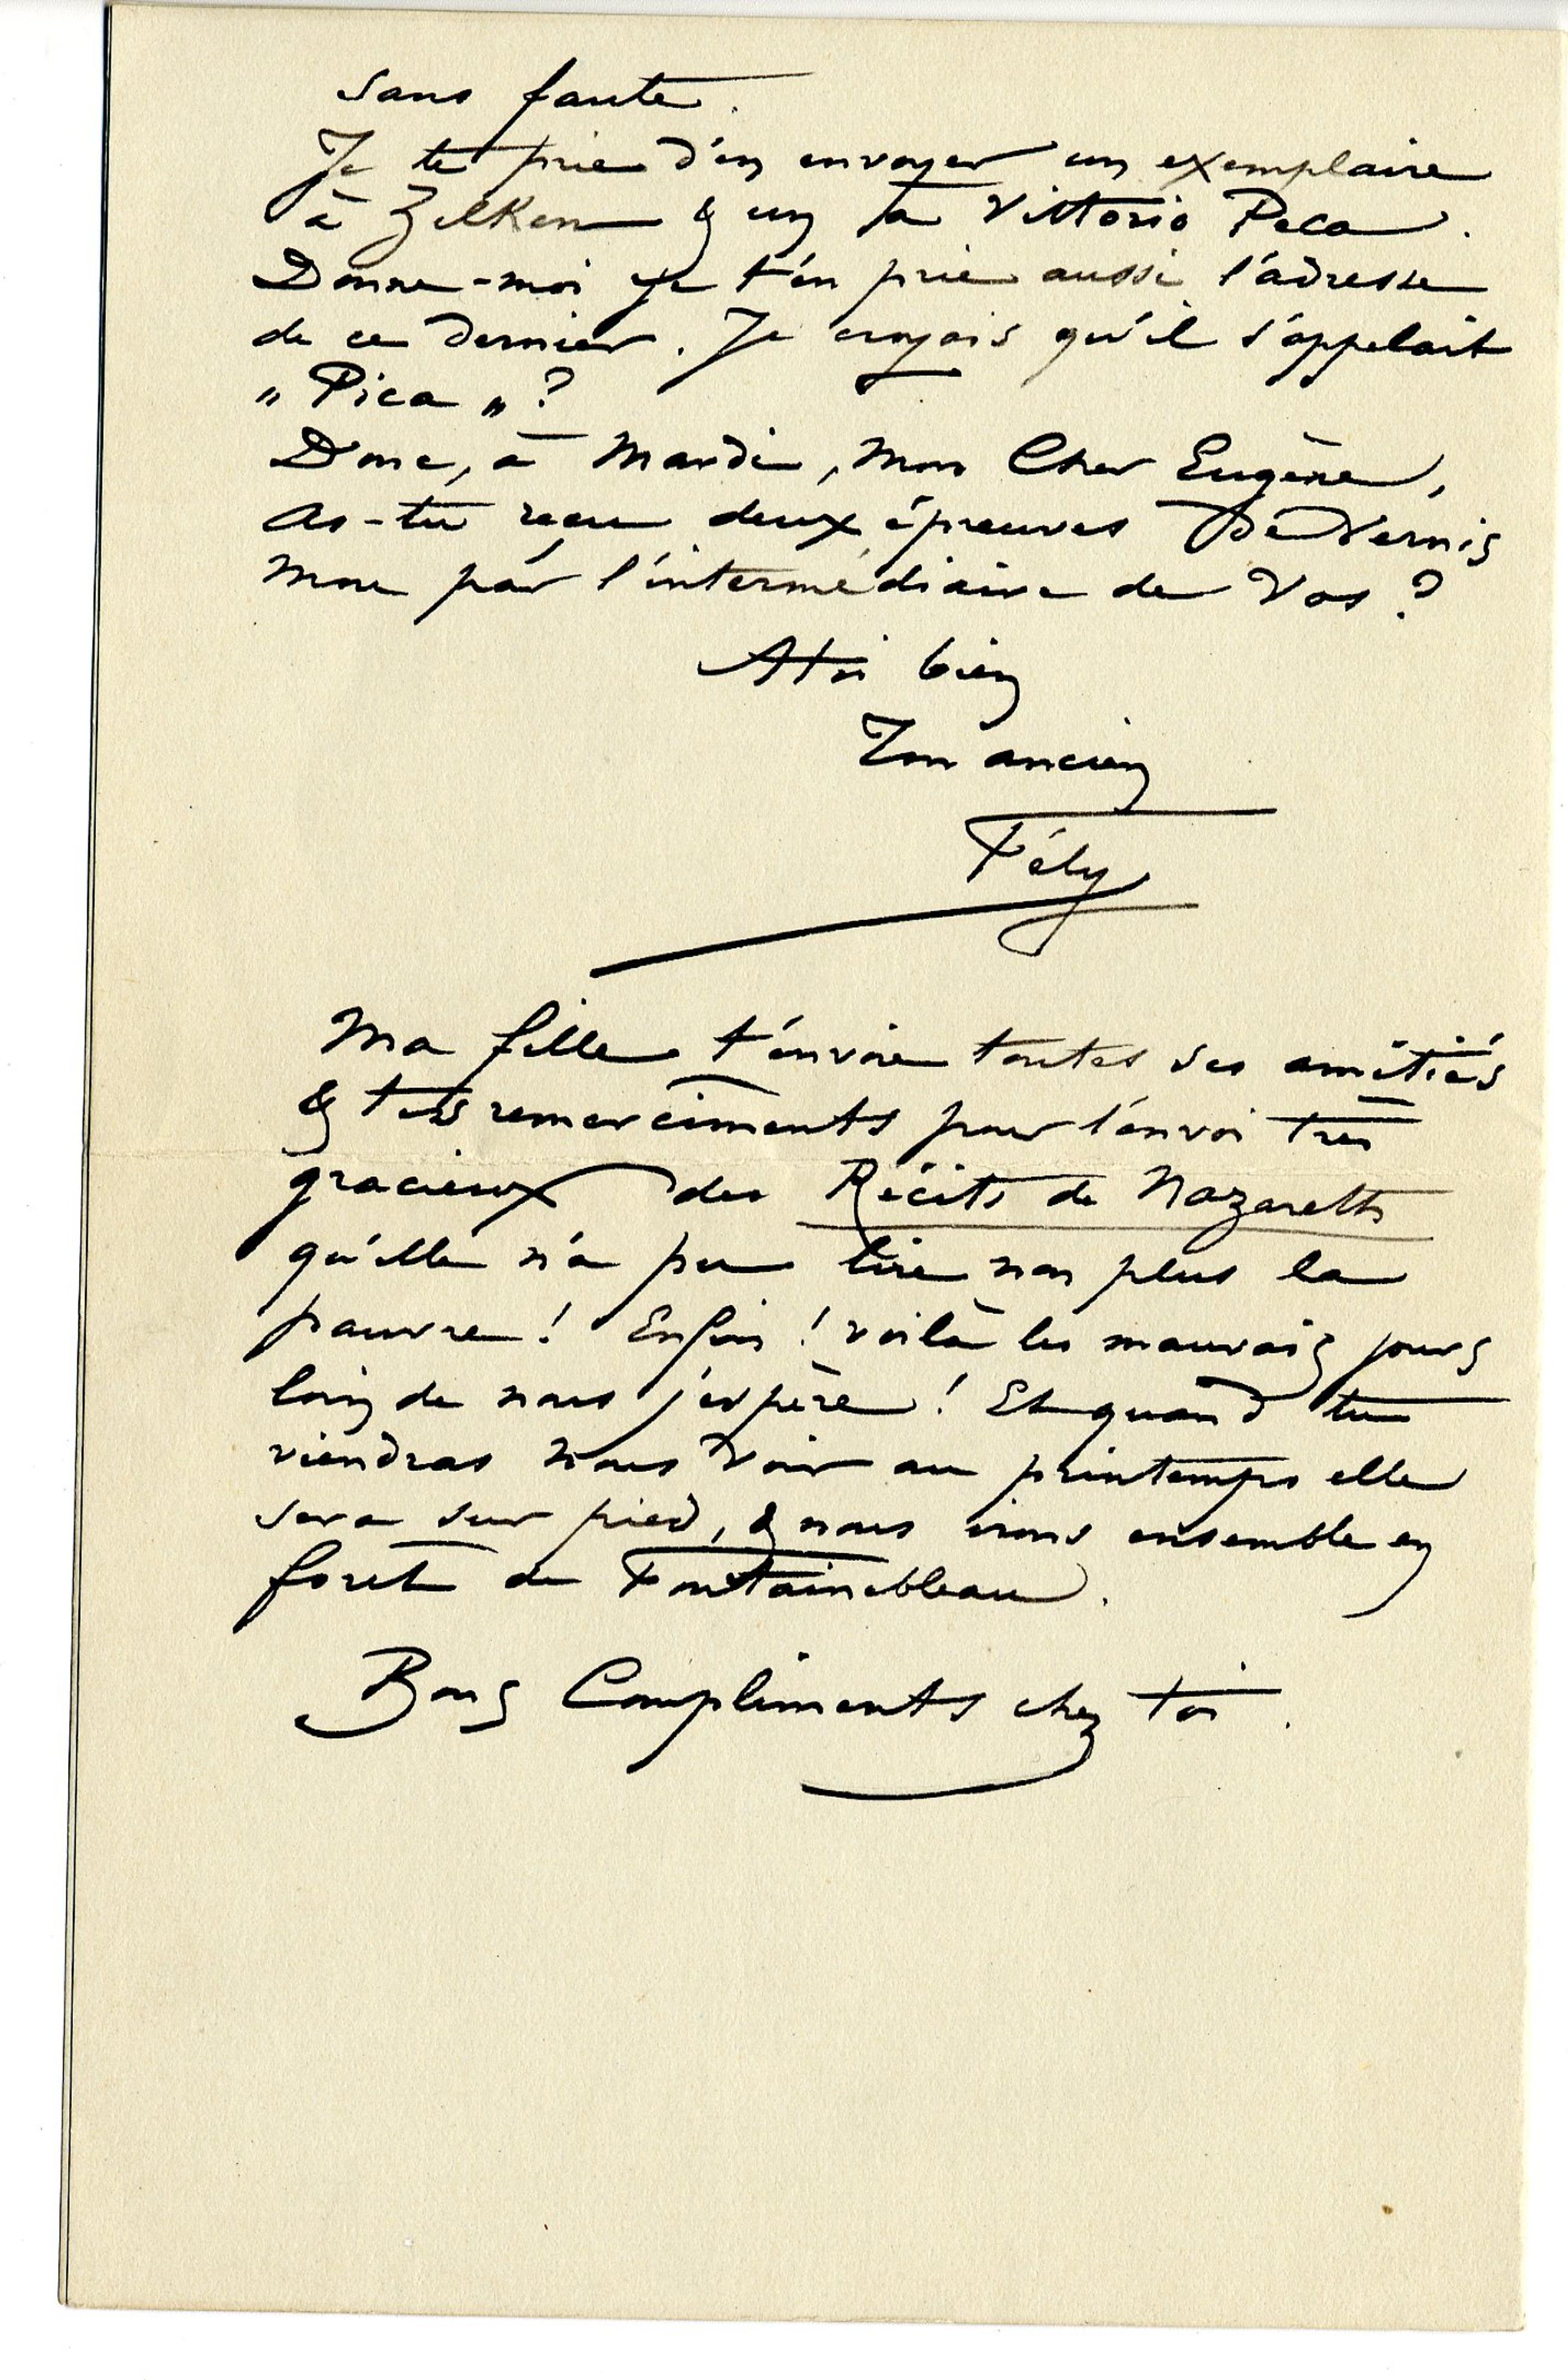 sans faute.
Je te prie d'en envoyer un exemplaire
à Zilken & un à Vittorio Peca.
Donne-moi je t'en prie aussi l'adresse
de ce dernier. Je croyais qu'il s'appelait
„ Pica „ ?
Donc, à Mardi, Mon Cher Eugène,
As-tu reçu deux épreuves de Vernis
Mou par l'intermédiaire de Vos ?
A toi bien
Ton ancien
Fély
Ma fille t'envoie toutes ses amitiés
& remerciments pour l'envoi très
gracieux des Récits de Nazareth
qu'elle n'a pu lire non plus la
pauvre ! Enfin ! voilà les mauvais jours
loin de nous j'espère ! Et quand tu
viendras nous voir au printemps elle
sera sur pied, & nous irons ensemble en
foret de Fontainebleau.
Bons Compliments chez toi.